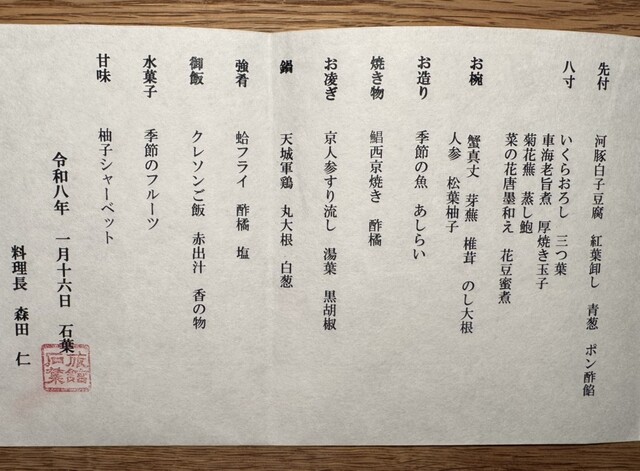 先付　河豚白子豆腐　紅葉卸し　青葱　ポン酢餡
八寸　いくらおろし　三つ葉
車海老旨煮　厚焼き玉子
菊花蕪　蒸し鮑
菜の花唐墨和え　花豆蜜煮
お椀　蟹真丈　芽蕪　椎茸　のし大根
人参　松葉柚子
お造り　季節の魚　あしらい
焼き物　鯧西京焼き　酢橘
お凌ぎ　京人参すり流し　湯葉　黒胡椒
鍋　天城軍鶏　丸大根　白葱
強肴　蛤フライ　酢橘　塩
御飯　クレソンご飯　赤出汁　香の物
水菓子　季節のフルーツ
甘味　柚子シャーベット
令和八年　一月十六日　石葉
料理長　森田　仁